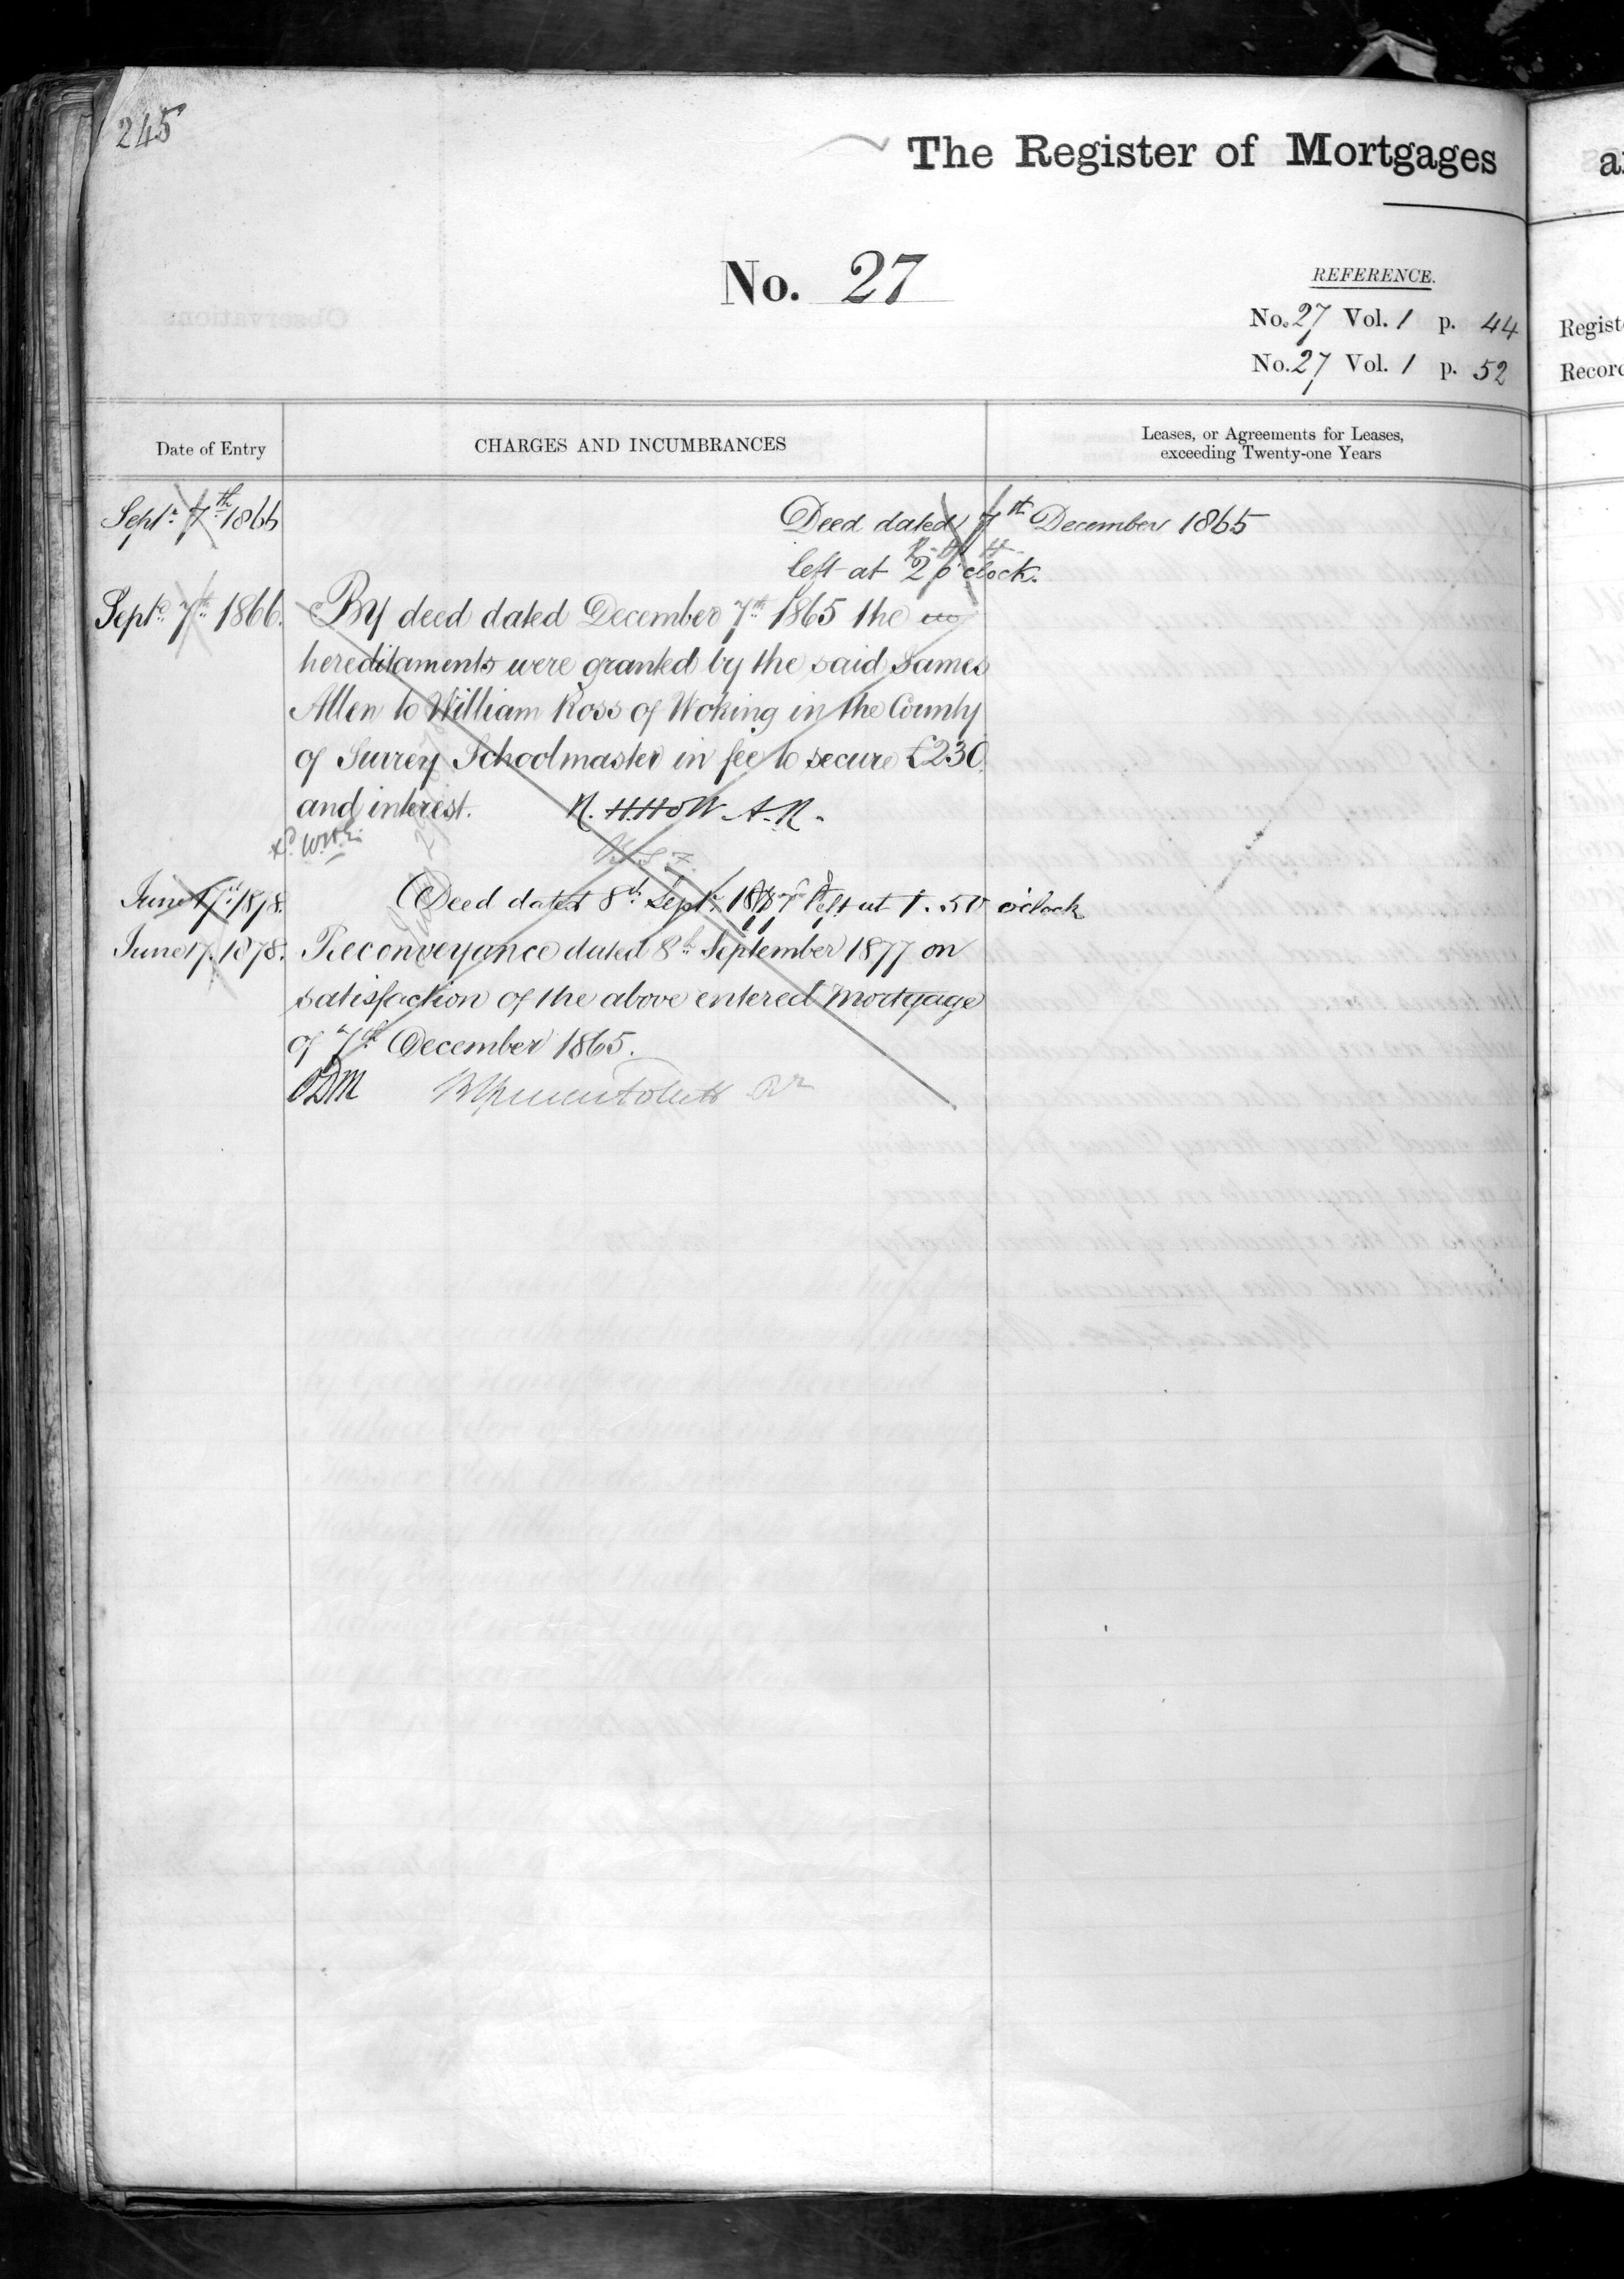 245
The Register of Mortgages
No. 27
REFERENCE.
No. 27 Vol. 1 p. 44
No. 27 Vol. 1 p. 52
Regist
Record
Date of Entry
CHARGES AND INCUMBRANCES
Leases, or Agreements for Leases,
exceeding Twenty-one Years
Septr. 7th 1866 Deed dated 7th December 1865
left at 2 o'clock.
Septr. 7th 1866. By deed dated December 7th 1865 the
hereditaments were granted by the said James
Allen to William Ross of Woking in the County
of Surrey Schoolmaster in fee to secure £230
and interest. R. H. Holt A. R.
June 17th 1878. Deed dated 8th Septr. 1877 left at 1.50 o'clock
June 17. 1878. Reconveyance dated 8th September 1877 on
satisfaction of the above entered Mortgage
of 7th December 1865.